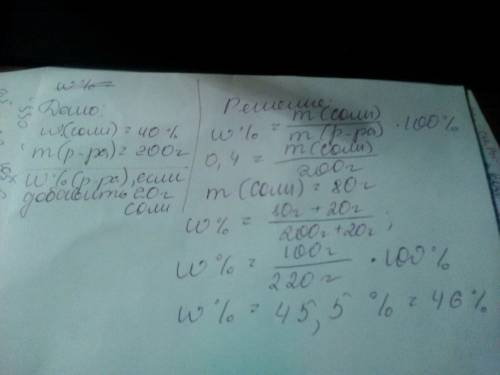 w%=
Дано:
w(соли) = 40%
m(р-ра) = 200г
w%(р-ра), если
добавить 20г
соли
Решение:
w% = m(соли) / m(р-ра) · 100%
0,4 = m(соли) / 200г
m(соли) = 80г
w% = 80г + 20г / 200г + 20г ;
w% = 100г / 220г · 100%
w% = 45,5 % = 46%